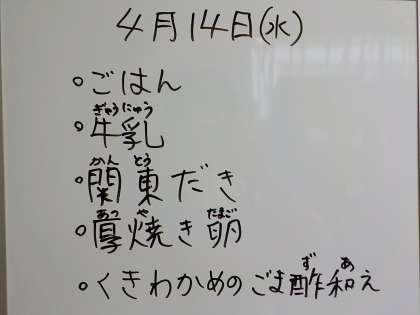 4月14日(水)
。ごはん
ぎゅうにゅう
。牛乳
かん とう
。関東だき
あつ や たまご
。厚焼き卵
ず あ
。くきわかめのごま酢和え